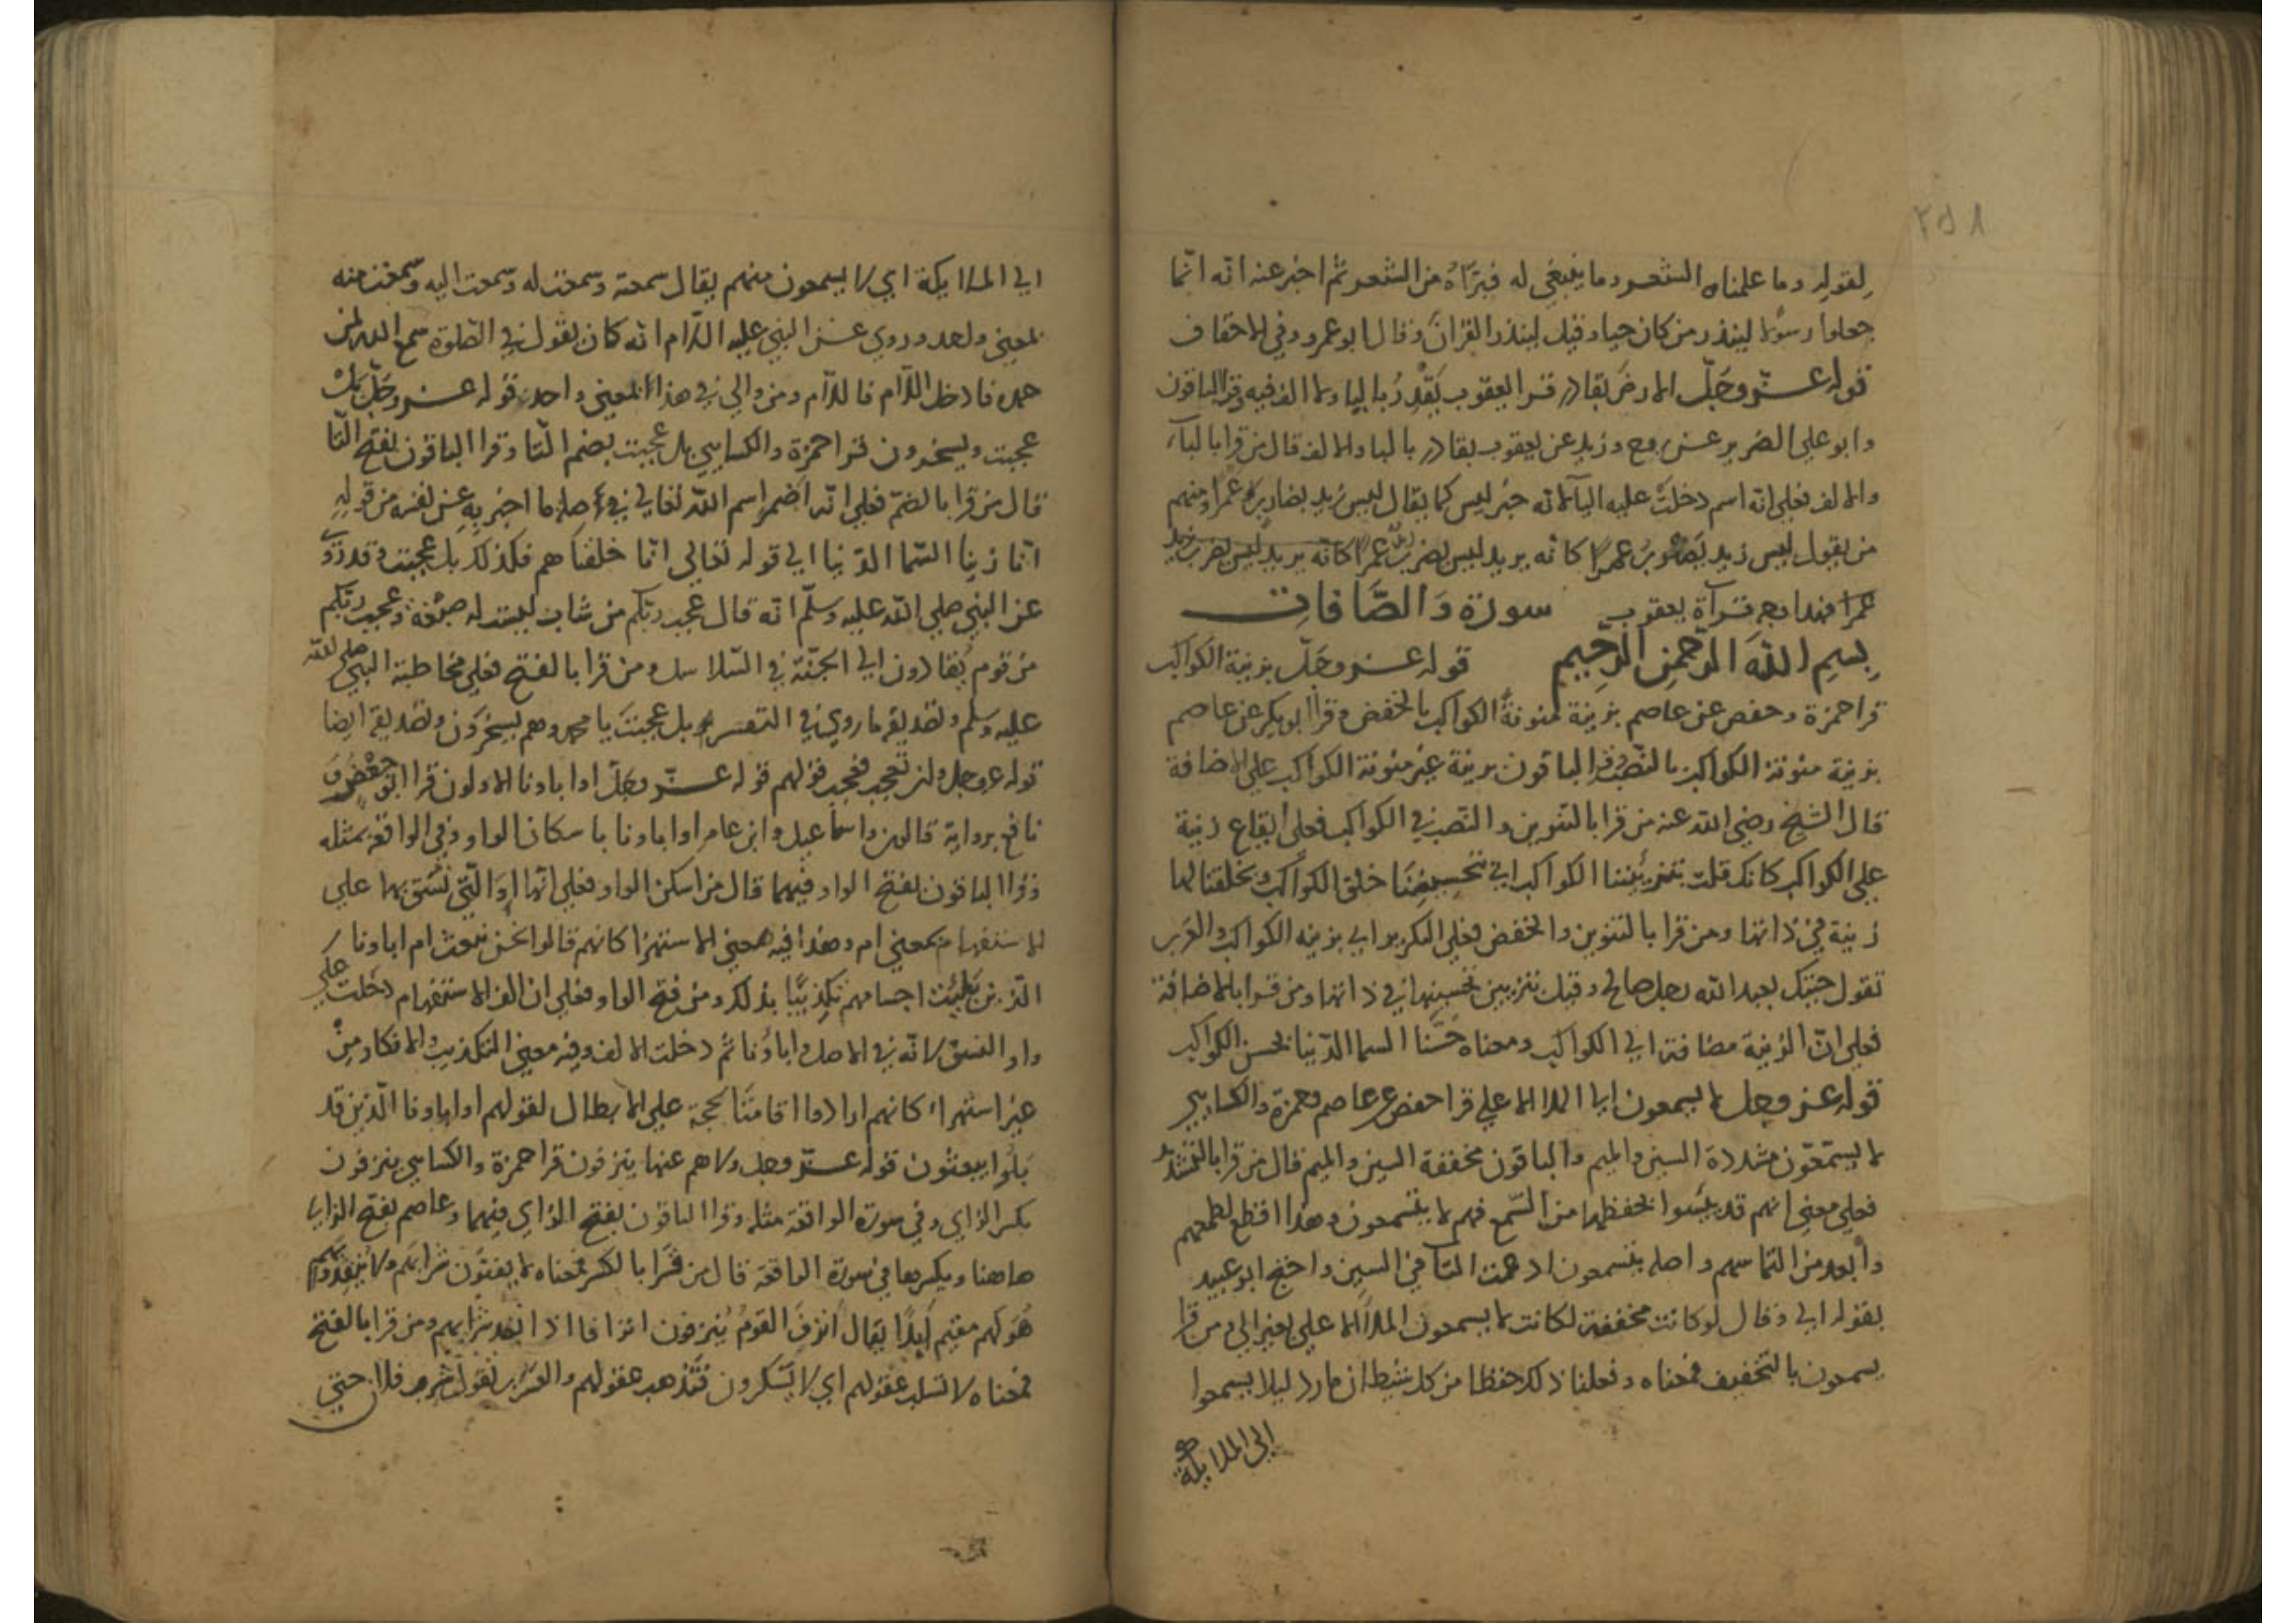 ٢٥٨
لقوله وما علمناه الشعر وما ينبغي له فبرّاه من الشعر ثم اخبر عنه انه انّما
جعلوا رسولا لينذر من كان حيا وقيل لينذر القران وقال ابو عمرو وفي الاحقاف
قوله عزّ وجَلّ الارض بقادر قرا يعقوب يَقْدِرُ باليا ولا الف فيه وقرا الباقون
وابو علي الضرير عن روح وزيد عن يعقوب بقادر بالبا والالف قال من قرا بالباء
والالف فعلى انه اسم دخلت عليه البآ لانه خبر ليس كما يقال ليس زيد بضارب عمرا ومنهم
من يقول ليس زيد يضرب عمرا كانه يريد ليس يضرب زيد عمرا كانه يريد ليس يضرب زيد
عمرا فهذا وجه قرآة يعقوب سورة وَالصَّافات
بسم الله الرحمن الرحيم قوله عز وجَلّ بزينة الكواكب
قرا حمزة وحفص عن عاصم بزينة منونةً الكواكب بالخفض وقرا ابو بكر عن عاصم
بزينة منونة الكواكب بالنصب وقرا الباقون بزينة غير منونة الكواكب على الاضافة
قال الشيخ رضي الله عنه من قرا بالتنوين والنصب في الكواكب فعلى ايقاع زينة
على الكواكب كانك قلت بتزييننا الكواكب اي تحسيننا خلق الكواكب وتخلقنا لها
زينة في ذاتها ومن قرا بالتنوين والخفض فعلى التكرير اي بزينه الكواكب والعرب
تقول جيتك بعبد الله رجل صالح وقيل بتزيين تحسينها في ذاتها ومن قرا بالاضافة
فعلى انّ الزينة مضافة الى الكواكب ومعناه حسّنا السما الدنيا بحسن الكواكب
قوله عز وجل لا يسمعون الى الملا الاعلى قرا حفص عن عاصم وحمزة والكسايي
لا يسّمّعون مشددة السين والميم والباقون مخففة السين والميم قال من قرا بالتشديد
فعلى معنى انهم قد يئسوا بحفظها من السّمع فهم لا يتسمعون وهذا اقطع لطمعهم
وابعد من التماسهم واصله يتسمعون ادغمت التا في السين واحتج ابو عبيد
بقوله الى وقال لو كانت مخففة لكانت لا يسمعون الملا الاعلى بغير الى ومن قرا
يسمعون بالتخفيف فمعناه وفعلنا ذلك حفظا من كل شيطان مارد ليلا يسمعوا
الى الملايكة
الى الملايكة اي لا يسمعون منهم يقال سمعته وسمعت له وسمعت اليه وسمعت منه
بمعنى واحد وروي عن النبي عليه السلام انه كان يقول في الصلوة سمع الله لمن
حمده فادخل اللآم فاللآم ومن والى في هذا المعنى واحد قوله عز وجَلّ بل
عجبت ويسخرون قرا حمزة والكسايي بل عجبت بضم التا وقرا الباقون بفتح التا
قال من قرا بالضم فعلى انه اضمر اسم الله تعالى في ما اخبر به عن نفسه من قوله
انا زينا السّما الدّنيا الى قوله تعالى انا خلقناهم فكذلك بل عجبت وقد روي
عن النبي صلى الله عليه وسلّم انه قال عجب ربّكم من شاب ليست له صبْوَة وعجب ربّكم
من قوم يُقادون الى الجنّة في السّلاسل ومن قرا بالفتح فعلى مخاطبة النبي صلى الله
عليه وسلم وتصديقه ما روي في التفسير بل عجبتَ يا محمد وهم يسخرون وتصديقه ايضا
قوله عز وجل وان تعجب فعجب قولهم قوله عزّ وجَلّ اوا باونا الاولون قرا ابو جعفر و
نافع برواية قالون واسماعيل وابن عامر اوا باونا باسكان الواو وفي الواقعة بمثله
وقرا الباقون بفتح الواو فيهما قال من اسكن الواو فعلى انها او التي نسق بها على
الاستفهام بمعنى ام وهذا فيه معنى الاستهزا كانهم قالوا نحن نبعث ام اباونا
الّذين بَليَت اجسامهم تكذيبًا بذلك ومن فتح الواو فعلى ان الف الاستفهام دخلت على
واو النسق لانه في الاصل واباؤنا ثم دخلت الالف وفيه معنى التكذيب والانكار من
غير استهزاء كانهم ارادوا اقامتنا لحجة على الابطال لقولهم اوا باونا الّذين قد
بلُوا يبعثون قوله عزّ وجل ولا هم عنها ينزفون قرا حمزة والكسايي ينزفون
بكسر الزاي وفي سورة الواقعة مثله وقرا الباقون بفتح الزاي فيهما وعاصم بفتح الزاي
هاهنا ويكسرها في سورة الواقعة قال من قرا بالكسر فمعناه لا يفنون شرابهم ولا ينفدونهم
هُو لهم مقيم ابدًا يقال انزفَ القومُ يُنزفون انزافا اذا انفد شرابهم ومن قرا بالفتح
فمعناه لا تسلب عقولهم اي لا يَسْكرون فتذهب عقولهم والعرب تقول شرب فلان حتى